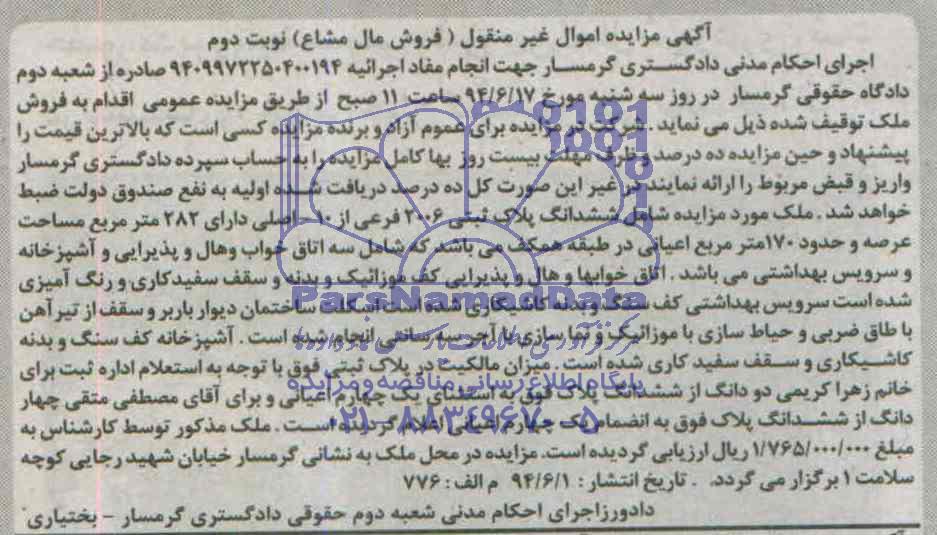 آگهی مزایده اموال غیر منقول ( فروش مال مشاع ) نوبت دوم
اجرای احکام مدنی دادگستری گرمسار جهت انجام مفاد اجرائیه ۹۴۰۹۹۷۲۲۵۰۴۰۰۱۹۴ صادره از شعبه دوم
دادگاه حقوقی گرمسار در روز سه شنبه مورخ ۹۴/۶/۱۷ ساعت ۱۱ صبح از طریق مزایده عمومی اقدام به فروش
ملک توقیف شده ذیل می نماید . شرکت در مزایده برای عموم آزاد و برنده مزایده کسی است که بالاترین قیمت را
پیشنهاد و حین مزایده ده درصد و ظرف مهلت بیست روز بها کامل مزایده را به حساب سپرده دادگستری گرمسار
واریز و قبض مربوط را ارائه نمایند در غیر این صورت کل ده درصد دریافت شده اولیه به نفع صندوق دولت ضبط
خواهد شد . ملک مورد مزایده شامل ششدانگ پلاک ثبتی ۲۰۰۶ فرعی از ۱۰- اصلی دارای ۲۸۲ متر مربع مساحت
عرصه و حدود ۱۷۰متر مربع اعیانی در طبقه همکف می باشد که شامل سه اتاق خواب وهال و پذیرایی و آشپزخانه
و سرویس بهداشتی می باشد . اتاق خوابها و هال و پذیرایی کف موزائیک و بدنه و سقف سفیدکاری و رنگ آمیزی
شده است سرویس بهداشتی کف سنگ و بدنه کاشیکاری شده است اسکلت ساختمان دیوار باربر و سقف از تیرآهن
با طاق ضربی و حیاط سازی با موزائیک و نما سازی با آجر سه سانتی انجام شده است . آشپزخانه کف سنگ و بدنه
کاشیکاری و سقف سفید کاری شده است . میزان مالکیت در پلاک ثبتی فوق با توجه به استعلام اداره ثبت برای
خانم زهرا کریمی دو دانگ از ششدانگ پلاک فوق به استثنای یک چهارم اعیانی و برای آقای مصطفی متقی چهار
دانگ از ششدانگ پلاک فوق به انضمام یک چهارم اعیانی اعلام گردیده است . ملک مذکور توسط کارشناس به
مبلغ ۱/۷۶۵/۰۰۰/۰۰۰ ریال ارزیابی گردیده است. مزایده در محل ملک به نشانی گرمسار خیابان شهید رجایی کوچه
سلامت ۱ برگزار می گردد. . تاریخ انتشار : ۹۴/۶/۱ م الف : ۷۷۶
دادورزاجرای احکام مدنی شعبه دوم حقوقی دادگستری گرمسار - بختیاری
ParsNamadData
پایگاه اطلاع رسانی مناقصه و مزایده
۰۲۱-۸۸۳۴۹۶۷۰-۵